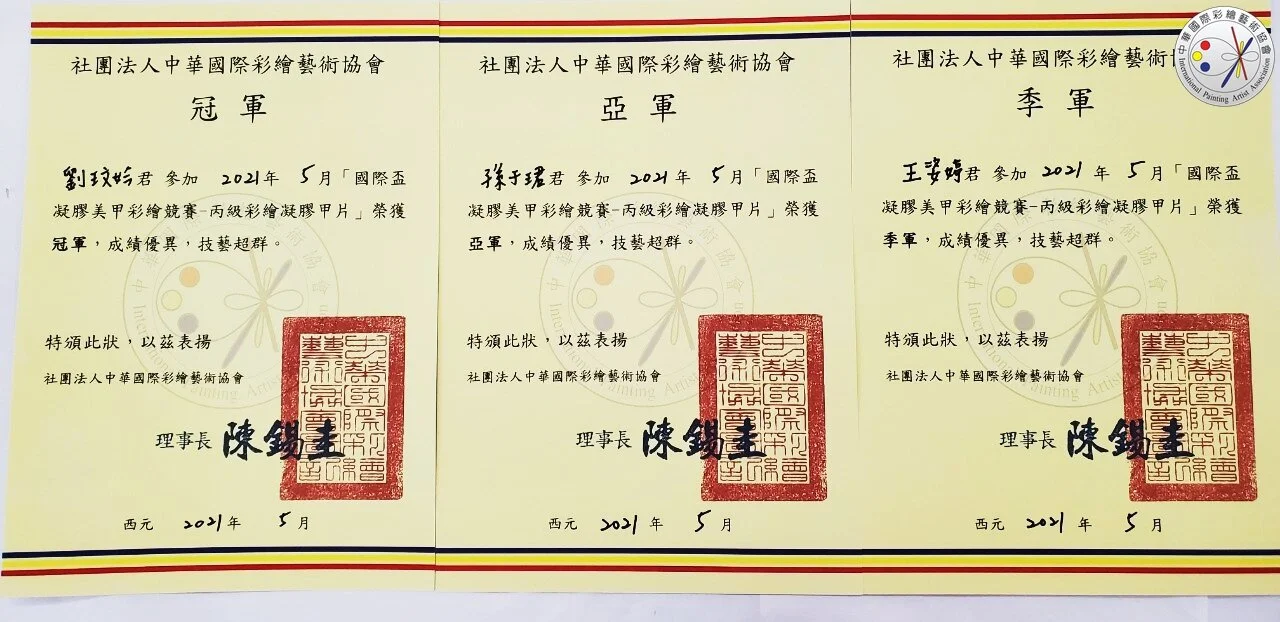 社團法人中華國際彩繪藝術協會
冠軍
劉玟妗君 參加 2021年 5月「國際盃
凝膠美甲彩繪競賽-丙級彩繪凝膠甲片」榮獲
冠軍，成績優異，技藝超群。
特頒此狀，以茲表揚
社團法人中華國際彩繪藝術協會
理事長 陳錫圭
西元 2021年 5月
社團法人中華國際彩繪藝術協會
亞軍
孫于珺君 參加 2021年 5月「國際盃
凝膠美甲彩繪競賽-丙級彩繪凝膠甲片」榮獲
亞軍，成績優異，技藝超群。
特頒此狀，以茲表揚
社團法人中華國際彩繪藝術協會
理事長 陳錫圭
西元 2021年 5月
社團法人中華國際彩繪藝術
季軍
王姿婷君 參加 2021年 5月「國際盃
凝膠美甲彩繪競賽-丙級彩繪凝膠甲片」榮獲
季軍，成績優異，技藝超群。
特頒此狀，以茲表揚
社團法人中華國際彩繪藝術協會
理事長 陳錫圭
西元 2021年 5月
中華國際彩繪藝術協會
International Painting Artist Association